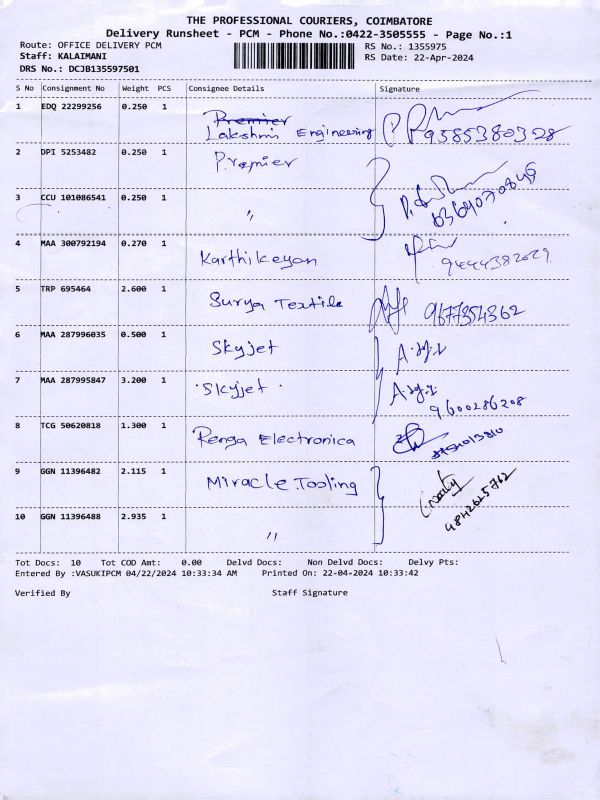 THE PROFESSIONAL COURIERS, COIMBATORE
Delivery Runsheet - PCM - Phone No.:0422-3505555 - Page No.:1
Route: OFFICE DELIVERY PCM RS No.: 1355975
Staff: KALAIMANI RS Date: 22-Apr-2024
DRS No.: DCJB135597501
S No Consignment No Weight PCS Consignee Details Signature
1 EDQ 22299256 0.250 1 Premier
Lakshmi Engineering 9585380328
2 DPI 5253482 0.250 1 Premier
3 CCU 101086541 0.250 1 "
4 MAA 300792194 0.270 1 Karthikeyan 9444382029
5 TRP 695464 2.600 1 Surya Textile 9677354362
6 MAA 287996035 0.500 1 Skyjet
7 MAA 287995847 3.200 1 Skyjet
9600286208
8 TCG 50620818 1.300 1 Renga Electronica
9 GGN 11396482 2.115 1 Miracle Tooling
4842625762
10 GGN 11396488 2.935 1 "
Tot Docs: 10 Tot COD Amt: 0.00 Delvd Docs: Non Delvd Docs: Delvy Pts:
Entered By :VASUKIPCM 04/22/2024 10:33:34 AM Printed On: 22-04-2024 10:33:42
Verified By Staff Signature